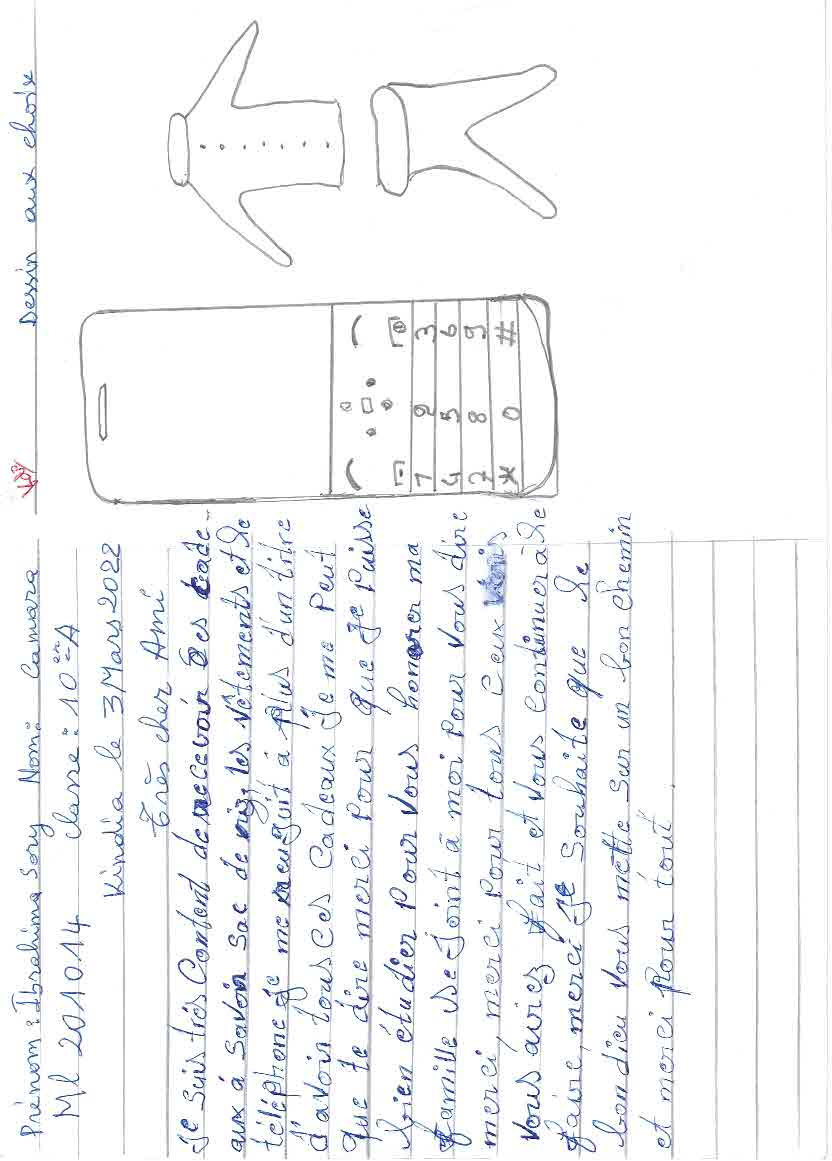 Prénom : Ibrahima Sory Nom: Camara
Ml 201014 classe : 10ème A
Kindia le 3 Mars 2022
Très cher Ami
Je suis très content de recevoir des cade-
aux à savoir sac de riz, les vêtements et le
téléphone je me à plus d'un titre
d'avoir tous ces cadeaux je me peut
que te dire merci pour que je puisse
bien étudier pour vous honorer ma
famille se joint à moi pour vous dire
merci, merci pour tous ceux
vous aviez fait et vous continuer à le
faire, merci je souhaite que le
bon dieu vous mette sur un bon chemin
et merci pour tout.
Dessin aux choix
1 2 3
4 5 6
7 8 9
* 0 #